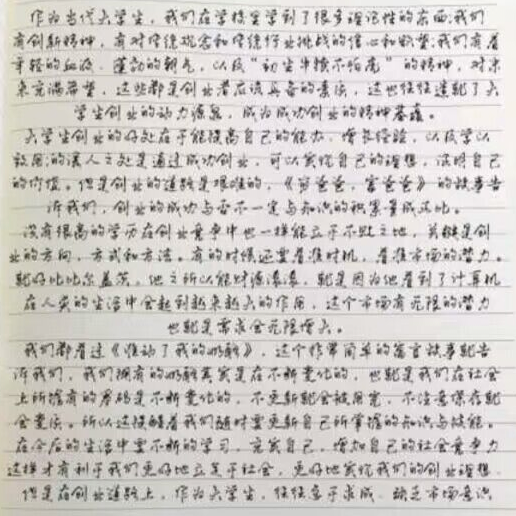 作为当代大学生，我们在学校里学到了很多理论性的东西，我们
有创新精神，有对传统观念和传统行业挑战的信心和欲望；我们有着
年轻的血液、蓬勃的朝气，以及“初生牛犊不怕虎”的精神，对未
来充满希望，这些都是创业者应该具备的素质，这也往往造就了大
学生创业的动力源泉，成为成功创业的精神基础。
大学生创业的好处在于能提高自己的能力、增长经验，以及学以
致用；的诱人之处是通过成功创业，可以实现自己的理想，证明自己
的价值。但是创业的道路是艰难的，《穷爸爸，富爸爸》的故事告
诉我们，创业的成功与否不一定与知识的积累量成正比。
没有很高的学历在创业竞争中也一样能立于不败之地，关键是创
业的方向，方式和方法。有的时候还要看准时机，看准市场的潜力。
就好比比尔盖茨，他之所以能财源滚滚，就是因为他看到了计算机
在人类的生活中会起到越来越大的作用，这个市场有无限的潜力
也就是需求会无限增大。
我们都看过《谁动了我的奶酪》，这个非常简单的寓言故事就告
诉我们，我们拥有的奶酪其实是在不断变化的，也就是我们在社会
上所拥有的基础是不断变化的，不更新就会被用完，不注意保存就
会变质。所以这提醒着我们随时要更新自己所掌握的知识与技能。
在今后的生活中要不断的学习，充实自己，增加自己的社会竞争力
这样才有利于我们更好地立足于社会，更好地实现我们的创业理想。
但是在创业道路上，作为大学生，往往急于求成、缺乏市场意识